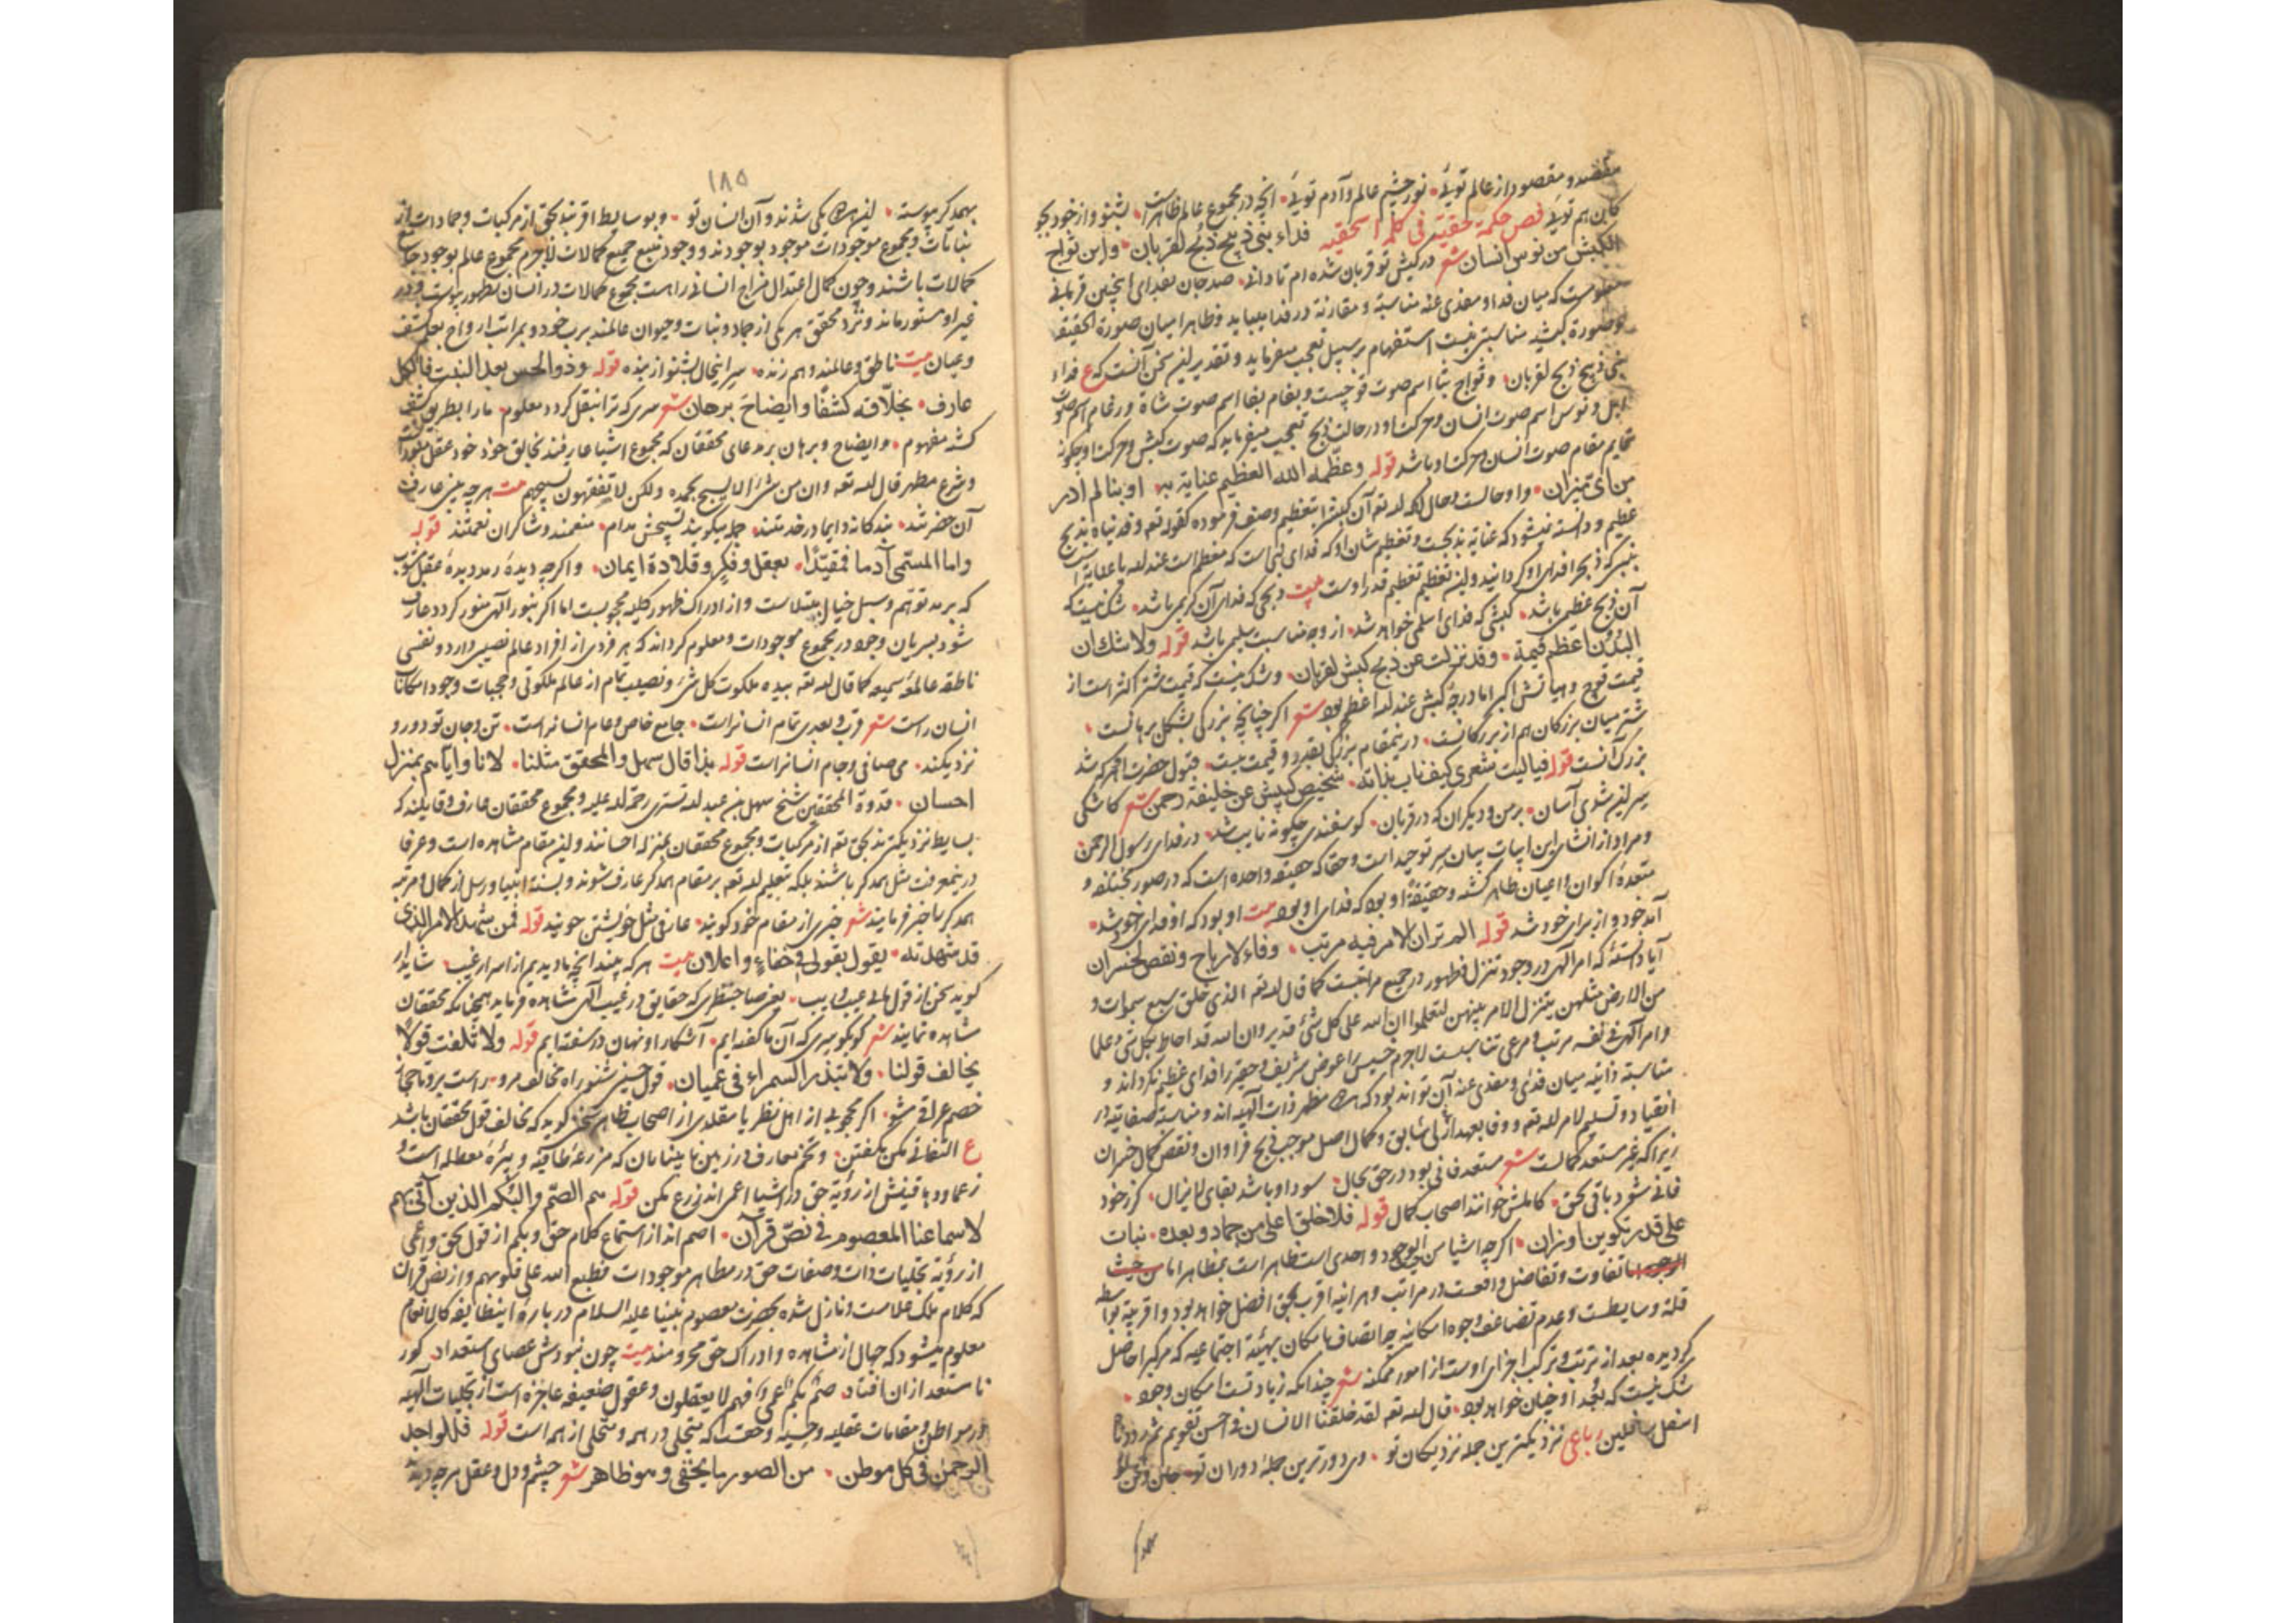 مقصد و مقصود از عالم توئی نور چشم عالم و آدم توئی انچه در مجموع عالم ظاهرست بشنو و از خود بجو
کان هم توئی فص حکمة حقیة فی کلمة اسحقیه فداء نبی ذبح ذبح لقربان و این ثواج
الکبش من نوس انسان شعر در کیش تو قربان شده‌ام تا دانی صد جان بفدای اینچنین قربانی
معلومست که میان فدا و مفدی عنه مناسبة و مقارنة در فدا میباید و ظاهرا میان صورة اسحقیه
و صورة کبشیه مناسبتی نیست استفهام بر سبیل تعجب میفرماید و تقدیر این سخن آنست که ع فداء
نبی ذبح ذبح لقربان و ثواج بثا اسم صوت قوچست و بغام بغا اسم صوت شاة و رغام اسم صوت
ابل و نوس اسم صوت انسان و حرکت او در حالت ذبح تعجب میفرماید که صوت کبش و حرکت او چگونه
قایم مقام صوت انسان و حرکت او باشد قوله وعظمه الله العظیم عنایة به او بنا لم ادر
من ای میزان واو حالست و حال آنکه لله تعه آن کبش را بتعظیم وصف فرموده کقوله تعه وفدیناه بذبح
عظیم و دانسته نمیشود که عنایة بذبحست و تعظیم شان او که فدای نبی است که معظم است عند لله یا عنایة است
بنبی که ذبح را فدای او گردانید و این تعظیم تعظیم قدر اوست بیت ذبحی که فدای آن کریمی باشد شک نیست که
آن ذبح عظیمی باشد کبشی که فدای اسلمی خواهد شد از وجه مناسبت سلیمی باشد قوله ولا شك ان
البدن اعظم قیمة وقد نزلت عن ذبح کبش لقربان و شک نیست که قیمت شتر اکثر است از
قیمت قوچ و هیاتش اکبر اما درجهٔ کبش عند لله اعظم بود شعر اگر چنانچه بزرگی بشکل برهانست
شتر میان بزرگان هم از بزرگانست درین مقام بزرگی بقدر و قیمت نیست قبول حضرت او هر که شد
بزرگ آنست قوله فیالیت شعری کیف ناب بذاته شخیص کبیش عن خلیفة رحمن شعر کاشکی
سر این شدی آسان بر من و دیگران که در قربان گوسفندی چگونه نایب شد در فدای رسول الرحمن
و مراد از انشای این ابیات بیان سر توحید است و حقا که حقیقه واحده است که در صور مختلفه و
متعددهٔ اکوان و اعیان ظاهر گشته و حقیقة او بود که فدای او بود بیت او بود که او فدای خود شد
آمد خود و از برای خود شد قوله الم تر ان الامر فیه مرتب وفاء لارباح ونقص لخسران
آیا دانستهٔ که امر آلهی در وجود تنزل و ظهور در جمیع مراتبست کما قال لله تعه الذی خلق سبع سموات و
من الارض مثلهن یتنزل الامر بینهن لتعلموا ان الله علی کل شئ قدیر وان الله قد احاط بکل شی علما
و امر آلهی فی نفسه مرتب و مرعی تناسبست لاجرم خسیس را عوض شریف و حقیر را فدای عظیم نگرداند و
مناسبة ذاتیه میان فدی و مفدی عنه آن تواند بود که هر دو مظهر ذات آلهیه‌اند و مناسبة صفاتیه در
انقیاد و تسلیم لامر لله تعه و وفا بعهد ازلی سابق و کمال اصل موجب ربح فراوان و نقص کمال خسران
زیرا که غیر مستعد کمالست شعر مستعد فانی بود در حق بحال سود او باشد بقای لایزال گر ز خود
فانی شود باقی بحق کاملش خوانند اصحاب کمال قوله فلا خلق اعلی من جماد وبعده نبات
علی قدر یکون و اوزان اگر چه اشیا من الوجود واحدی است ظاهر است بمظاهر اما من حیث
تفاوت و تفاضل واقعست در مراتب و هر آینه اقرب بحق افضل خواهد بود و اقربیة بواسطه
قلة وسایطست و عدم تضاعف وجوه امکانیه چه اتصاف بامکان بهیئة اجتماعیه که مرکبرا حاصل
گردیده بعد از ترتب و ترکب اجزای اوست از امور ممکنه شعر چندانکه زیادتست امکان وجود
شک نیست که بعد او چنان خواهد بود قال لله تعه لقد خلقنا الانسان فی احسن تقویم ثم رددناه
اسفل سافلین رباعی نزدیکترین جمله نزدیکان تو وی دورترین جملهٔ دوران تو جان و تن
۱۸۵
بهمدیگر پیوسته این هر دو یکی شدند و آن انسان تو و بوسایط اقربند بحق از مرکبات و جمادات از
نباتات و مجموع موجودات موجود بوجودند و وجود منبع جمیع کمالات لاجرم مجموع عالم بوجود جامع
کمالات باشند و چون کمال اعتدال مزاج انسانی راست مجموع کمالات در انسان بظهور پیوست و در
غیر او مستور ماند و نزد محقق هر یکی از جماد و نبات و حیوان عالمند برب خود و بمراتب ارواح بعلم کشف
و عیان بیت ناطق و عالمند و هم زنده سر اینحال بشنو از بنده قوله وذو الحس بعد النبت فالکل
عارف بخلاقه کشفا و ایضاح برهان شعر سری که ترا بنقل گردد معلوم مارا بطریق کشف
گشته مفهوم و ایضاح و برهان بر مدعای محققان که مجموع اشیا عارفند بخالق خود خود عقل منورا
و شرع مطهر قال لله تعه وان من شئ الا یسبح بحمده ولکن لا تفقهون تسبیحهم بیت هر چه بینی عارف
آن حضرتند بندگانه دایما در خدمتند جمله میگویند تسبیحش مدام منعمند و شاکران نعمتند قوله
واما المسمی آدما فمقید بعقل و فکر و قلادة ایمان و اگرچه دیدهٔ رمد دیدهٔ عقل مشوب
که برمد توهم و سبل خیال مبتلاست و از ادراک ظهور کلیه محجوبست اما اگر بنور آلهی منور گردد عارف
شود بسریان وجود در مجموع موجودات و معلوم گرداند که هر فردی از افراد عالم نصیبی دارد و نفسی
ناطقه عالمهٔ سمیعه کما قال لله تعه بیده ملکوت کل شئ و نصیب تمام از عالم ملکوتی و محجبات وجود امکانات
انسان راست شعر قرب و بعدی تمام انسانراست جامع خاص و عام انسانراست تن و جان تو دور و
نزدیکند می صافی و جام انسانراست قوله بذا قال سهل والمحقق مثلنا لانا وایاهم بمنزل
احسان قدوة المحققین شیخ سهل بن عبدلله تستری رحمة لله علیه و مجموع محققان عارف و قایلند که
بسایط نزدیکترند بحق تعه از مرکبات و مجموع محققان بمنزلهٔ احسانند و این مقام مشاهده است و عرفا
درینمعرفت مثل همدگر باشند بلکه بتعلیم لله تعه بر مقام همدگر عارف شوند و بسنة انبیا و رسل از کمال و مرتبه
همدگر ما خبر فرمایند شعر خبری از مقام خود گویند عارفی مثل خویشتن جویند قوله فمن شهد الامر الذی
قد شهدته یقول بقولی فی خفاء و اعلان بیت هر که بیند انچه ما دیدیم از اسرار غیب شاید ار
گوید سخن از قول ما بی عیب و ریب یعنی صاحبنظری که حقایق در غیب آلهی مشاهده فرماید همچنانکه محققان
مشاهده نمایند شعر گو بگو سری که آن ما گفته‌ایم آشکار او نهان در سفته‌ایم قوله ولا تلتفت قولا
یخالف قولنا ولا تبذر السمراء فی عمیان قول حسنین شنو راه مخالف مرو راست برو تا حجاز
خصم عراقی مشو اگر محجوبی از اهل نظر یا مقلدی از اصحاب ظاهر سخنی گوید که مخالف قول محققان باشد
ع التفاتی مکن بگفتن و تخم معارف در زمین نابینایان که مزرعهٔ طاقیه و بیرهٔ معطله است و
زعما و دیدهٔ بینش از رؤیة حق در اشیا اعمی‌اند زرع مکن قوله هم الصم والبکم الذین آتی بهم
لاسماعنا المعصوم فی نص قرآن اصم‌اند از استماع کلام حق و بکم از قول بحق و اعمی
از رؤیة تجلیات ذات و صفات حق در مظاهر موجودات فطبع الله علی قلوبهم و از نص قرآن
که کلام ملک علامست و نازل شده بحضرت معصوم نبینا علیه السلام در بارهٔ اینطایفه کالانعام
معلوم میشود که جهال از مشاهده و ادراک حق محرومند بیت چون نبودش عصای استعداد کور
نا مستعد از ان افتاد صم بکم عمی فهم لا یعقلون و عقول ضعیفه عاجزه است از تجلیات آلهیه
در مواطن و مقامات عقلیه و حسیه و حقست که متجلی در همه و متحلی از همه است قوله فللواحد
الرحمن فی کل موطن من الصور ما یخفی وهو ظاهر شعر چشم و دل و عقل هر چه دیده